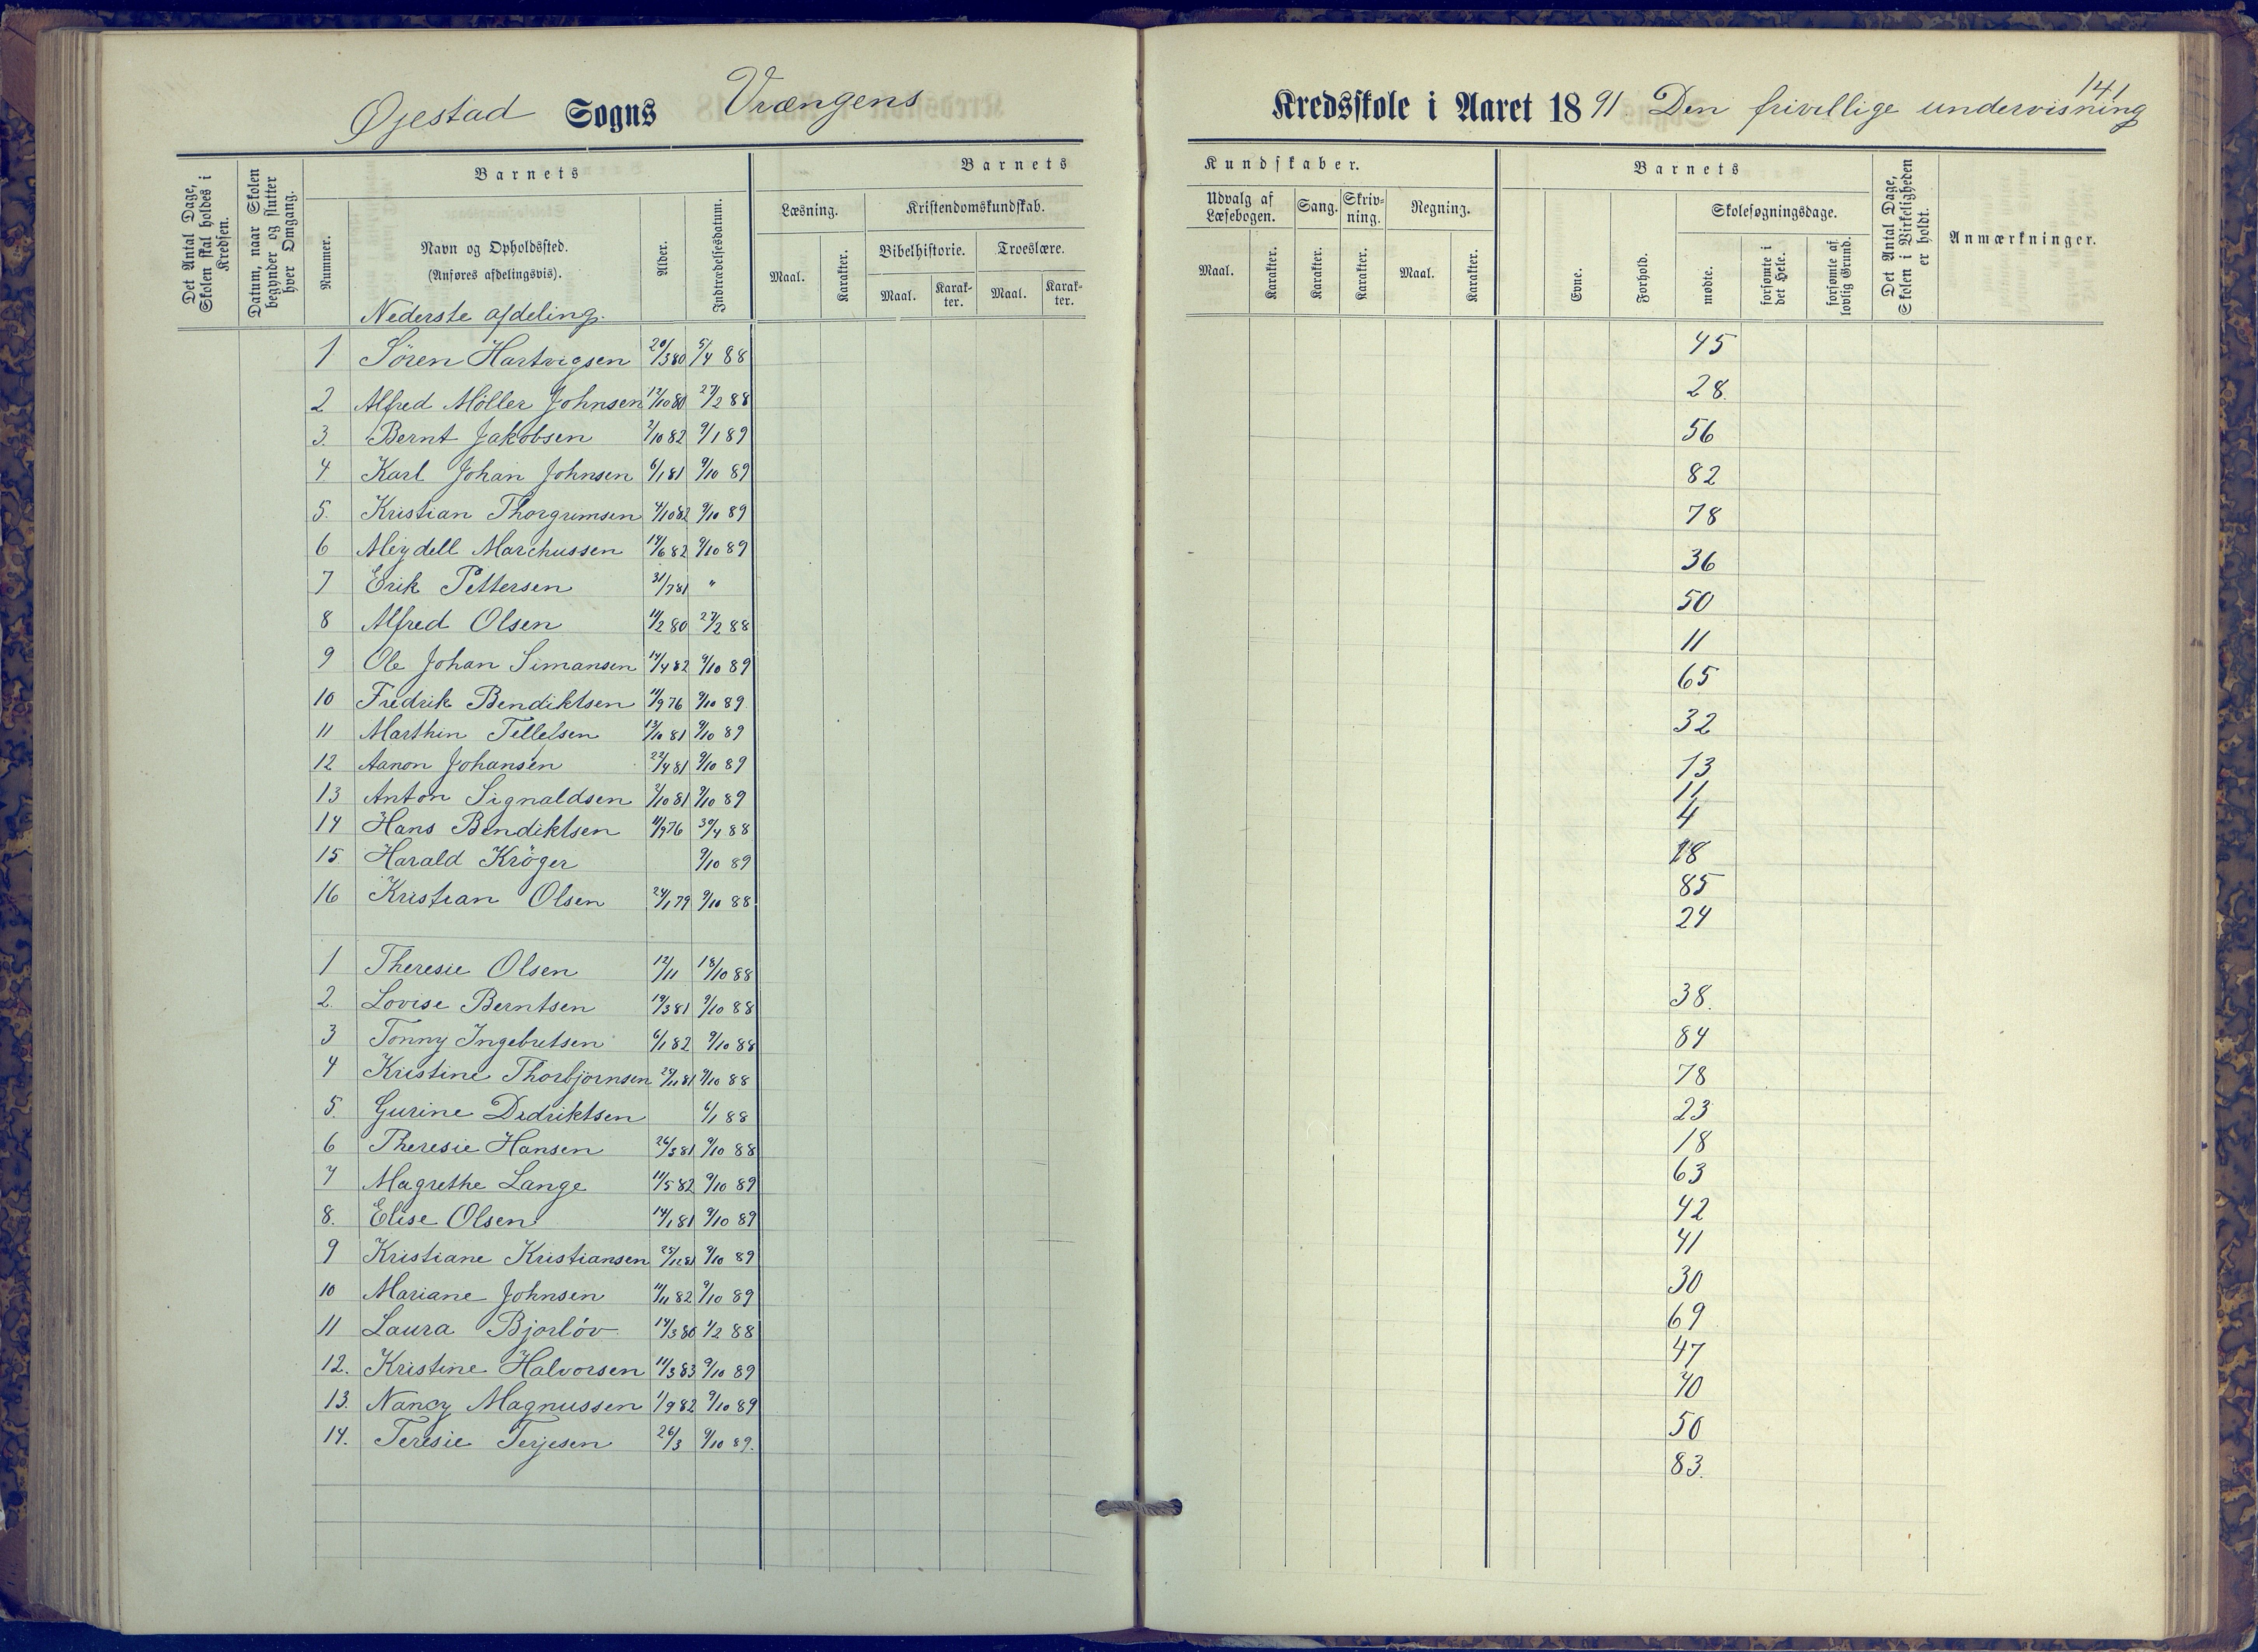 141
Øjestad Sogns Vrængens Kredsskole i Aaret 1891 Den frivillige undervisning
Det Antal Dage, Skolen skal holdes i Kredsen.
Datum, naar Skolen begynder og slutter hver Omgang.
Barnets
Nummer.
Navn og Opholdssted.
(Anføres afdelingsvis).
Alder.
Indtrædelsesdatum.
Barnets Kundskaber.
Læsning.
Maal.
Karakter.
Kristendomskundskab.
Bibelhistorie.
Maal.
Karakter.
Troeslære.
Maal.
Karakter.
Udvalg af Læsebogen.
Maal.
Karakter.
Sang.
Karakter.
Skrivning.
Karakter.
Regning.
Maal.
Karakter.
Barnets
Evne.
Forhold.
Skolesøgningsdage.
mødte.
forsømte i det Hele.
forsømte af lovlig Grund.
Det Antal Dage, Skolen i Virkeligheden er holdt.
Anmærkninger.
Nederste afdeling.
1 Søren Hartvigsen 20/3 80 5/4 88 45
2 Alfred Möller Johnsen 12/10 80 27/2 88 28.
3. Bernt Jakobsen 2/10 82 9/1 89 56
4 Karl Johan Johnsen 6/1 81 9/10 89 82
5. Kristian Thorgrimsen 4/10 82 9/10 89 78
6 Meydell Marchussen 14/6 82 9/10 89 36
7 Erik Pettersen 31/7 81 " 50
8 Alfred Olsen 11/2 80 27/2 88 11
9 Ole Johan Simansen 14/4 82 9/10 89 65
10 Fredrik Bendiktsen 11/9 76 9/10 89 32
11 Marthin Tellefsen 13/10 81 9/10 89 13
12 Aanon Johansen 22/4 81 9/10 89 11
13 Anton Signaldsen 2/10 81 9/10 89 4
14 Hans Bendiktsen 11/9 76 30/4 88 18
15 Harald Kröger 9/10 89 85
16 Kristian Olsen 24/1 79 9/10 88 24
1 Theresie Olsen 12/11 18/10 88 38.
2. Lovise Berntsen 19/3 81 9/10 88 84
3 Tonny Ingebretsen 6/1 82 9/10 88 78
4 Kristine Thorbjørnsen 29/11 81 9/10 88 23
5. Gurine Didriktsen 6/1 88 18
6 Theresie Hansen 26/3 81 9/10 88 63
7 Magrethe Lange 11/5 82 9/10 89 42
8. Elise Olsen 14/1 81 9/10 89 41
9 Kristiane Kristiansen 25/12 81 9/10 89 30
10 Mariane Johnsen 11/11 82 9/10 89 69
11 Laura Bjorløv 14/3 80 1/2 88 47
12. Kristine Halvorsen 11/3 83 9/10 89 70
13. Nancy Magnussen 1/9 82 9/10 89 50
14. Teresie Terjesen 26/3 9/10 89. 83.